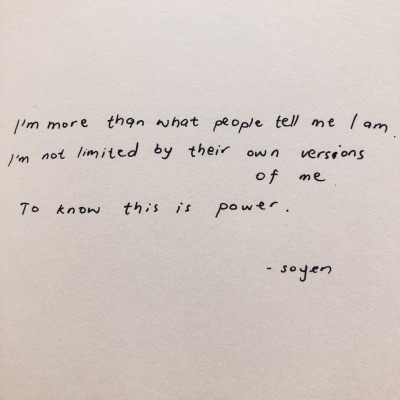 I'm more than what people tell me I am.
I'm not limited by their own versions
of me
To know this is power.
- soyen